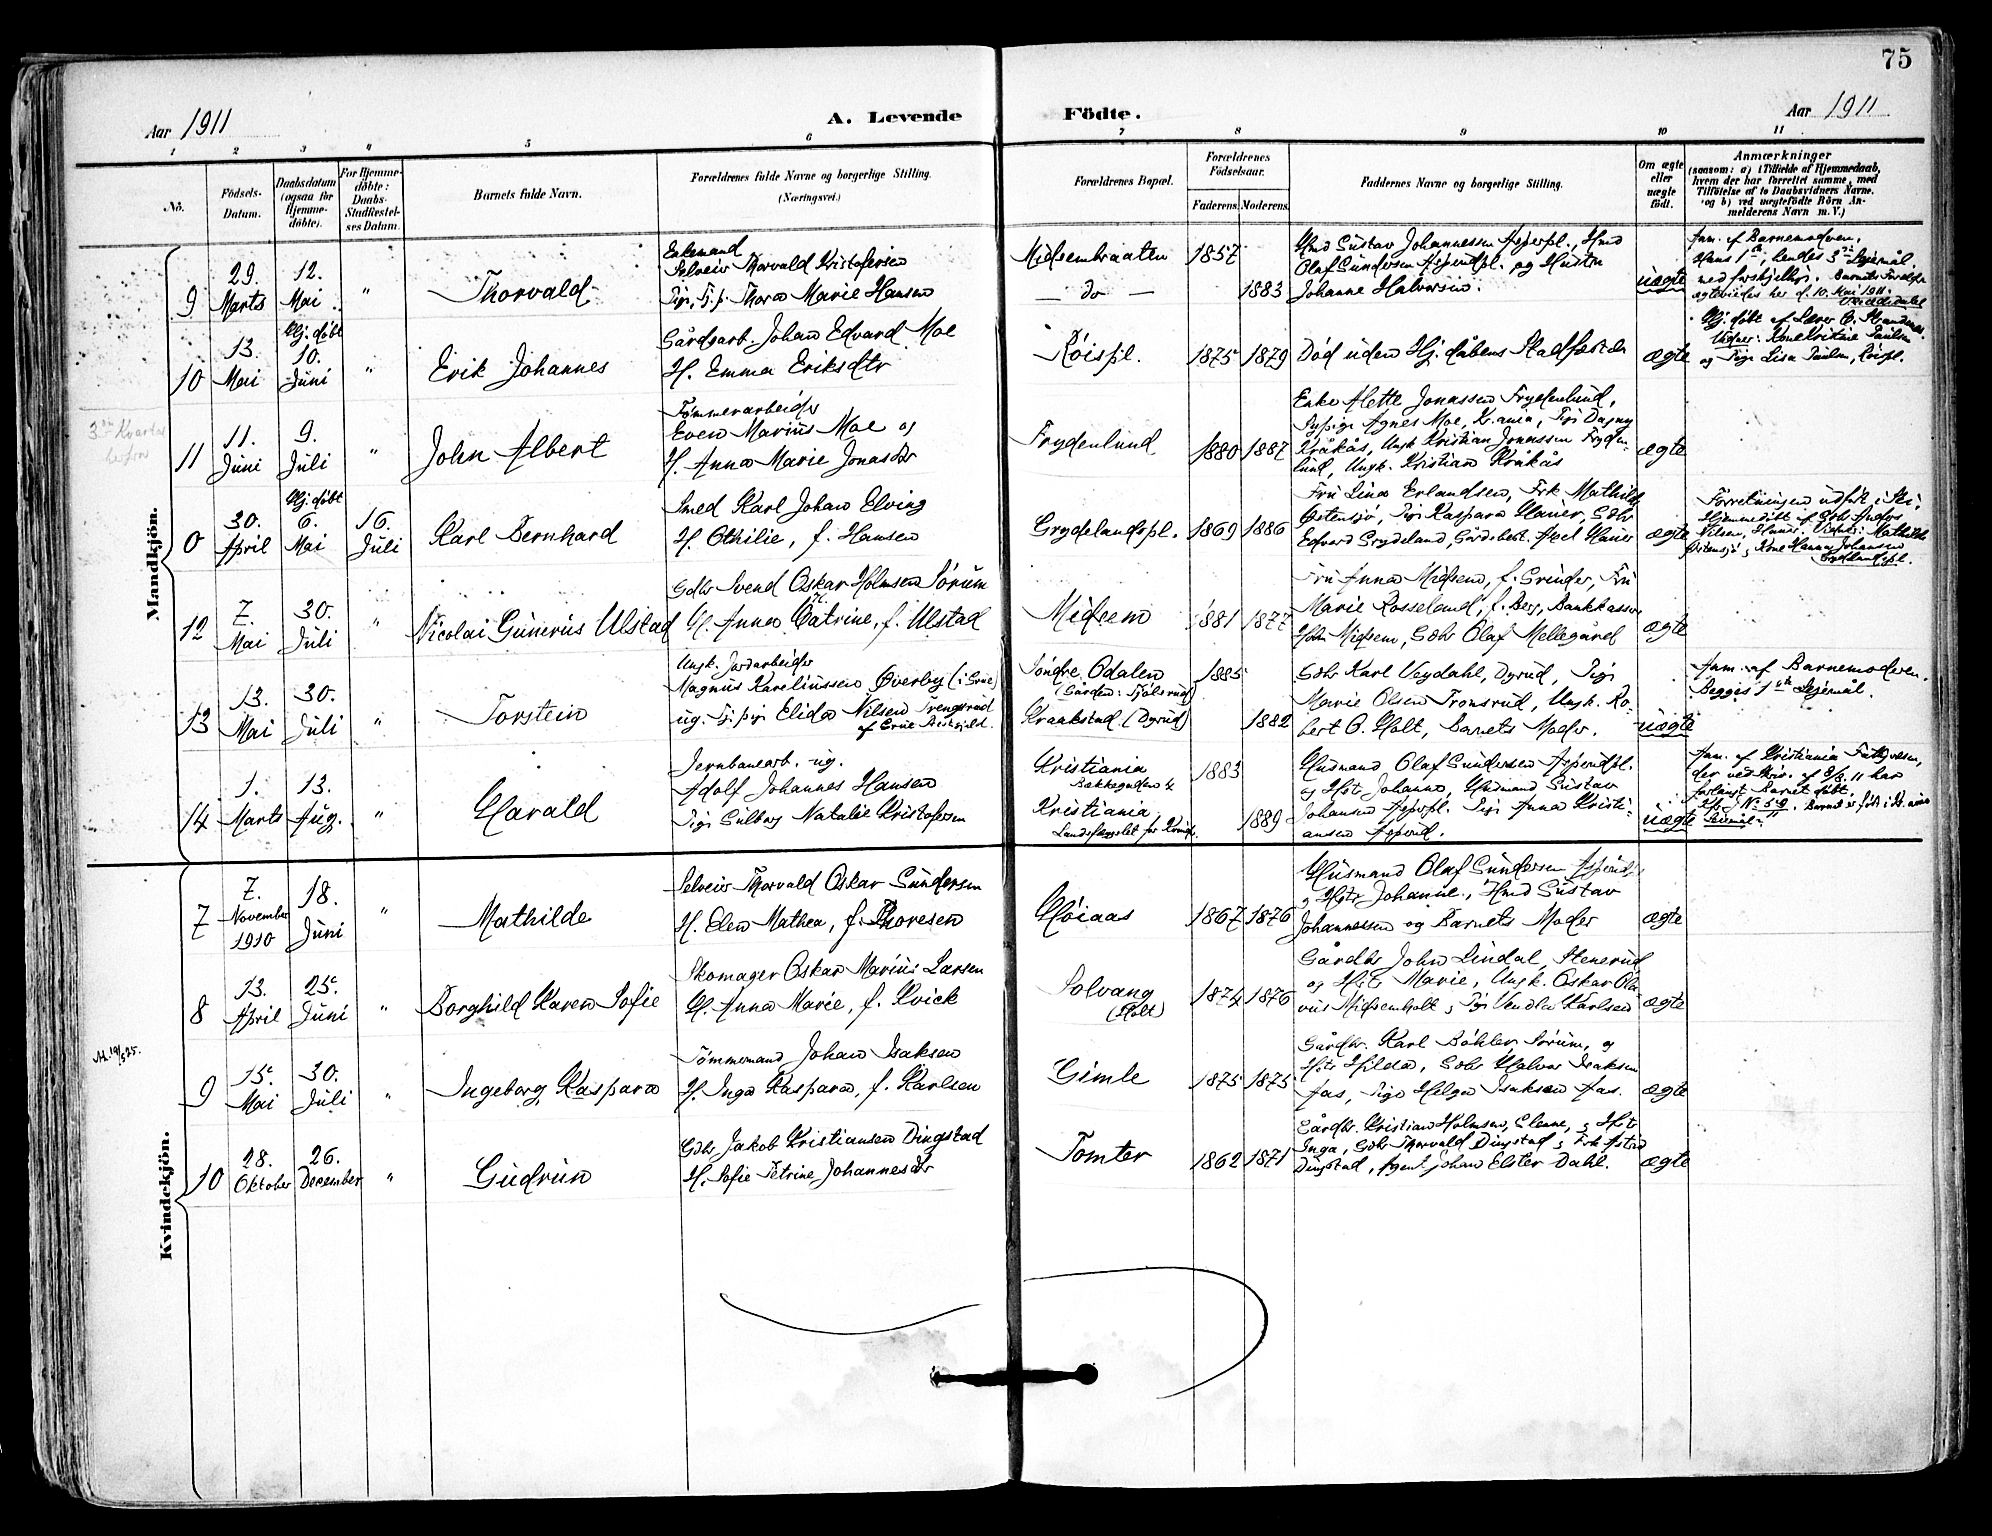 75
Aar 1911
A. Levende Födte.
Aar 1911
1 2 3 4 5 6 7 8 9 10 11
No.
Födsels-Datum.
Daabsdatum (ogsaa for Hjemme-döbte).
For Hjemme-döbte: Daabs-Stadfæstel-ses Datum.
Barnets fulde Navn.
Forældrenes fulde Navne og borgerlige Stilling.
(Næringsvei.)
Forældrenes Bopæl.
Forældrenes Födselsaar.
Faderens. Moderens.
Faddernes Navne og borgerlige Stilling.
Om ægte eller uægte födt.
Anmærkninger
(saasom: a) i Tilfælde af Hjemmedaab,
hvem der har forrettet samme, med
Tilföielse af to Daabsvidners Navne,
og b) ved uægtefödte Börn An-
melderens Navn m. V.)
Mandkjön.
9
29. Marts
12. Mai
"
Thorvald
Enkemand
Selveier Thorvald Kristofersen
Pige, Tj.p. Thora Marie Hansen
Midsembraaten
— do —
1857
1883
Hmd Gustav Johannessen Asperpl., Hmd
Olaf Gundersen Asperudpl. og Hustru
Johanne Halvorsen.
uægte
Anm. af Barnemoderen.
Hans 1ste, hendes 3die Leiermål
med forskjellig. Barnets Forældre
ægteviedes her d. 10. Mai 1911.
10
13. Mai
Hj. döbt 10. Juni
"
Erik Johannes
Gårdsarb. Johan Edvard Moe
H. Emma Eriksdtr
Röispl.
1875 1879
Död uden Hj. dåbens Stadfæstelse
ægte
Hj. döbt af Lærer
Vidner: Kone Kristine Paulsen
og Pige Lisa Paulsen, Röispl.
3die Kvartal
11
11. Juni
9. Juli
"
John Albert
Tömmerarbeider
Even Marius Moe og
H. Anna Marie Jonasdtr
Frydenlund
1880 1887
Enke Alette Jonassen Frydenlund,
Sypige Agnes Moe, Kr.ania, Pige Dagny
Kråkås, Ungk. Kristian Jonassen Fryden-
lund, Ungk. Kristian Kråkås
ægte
0
30. April
Hj. döbt 6. Mai
16. Juli
Karl Bernhard
Smed Karl Johan Elving
H. Othilie, f. Hansen
Grydelandspl.
1869 1886
Fru Lina Erlandsen, Frk Mathilde
Östensjö, Pige Kaspara Hauer, Gdbr
Edvard Grydeland, Gårdsbest. Axel Hauer
ægte
Forretningen udfört i Ski,
Hjemmedöbt af Gdbr Anders
Nilsen, Vidner: Mathilde
Östensjö, Kone Hanna Johansen
Grydelandspl.
12
7. Mai
30. Juli
"
Nicolai Gunerius Ulstad
Gdbr Svend Oskar Holmsen Sörum
H. Anna Catrine, f. Ulstad
Midsem
1881 1877
Fru Anna Midsem, f. Grinder, Fru
Marie Rosseland, f. Berg, Bankkasser
John Midsem, Gdbr Olaf Mellegård
ægte
13
13. Mai
30. Juli
"
Torstein
Ungk. Jordarbeider
Magnus Kareliussen Överby (i Grue)
ug. Tj. pige Elida Nilsen Trengsrud
af Grue
Söndre Odalen
Kraakstad (Dyrud)
1885
1882
Gdbr Karl Vegdahl, Dyrud, Pige
Marie Olsen Tronsrud, Ungk. Ro-
bert O. Holt, Barnets Moder.
uægte
Anm. af Barnemoderen.
Begges 1ste Leiermål.
14
1. Marts
13. Aug.
"
Harald
Jernbanearb. ug.
Adolf Johannes Hansen
Pige Gulborg Natalie Kristofersen
Kristiania
Bakkegaden 4
Kristiania
Landsfængslet for Kvinder
1883
1889
Husmand Olaf Gundersen Asperudpl.
og Hst Johanne, Husmand Gustav
Johansen Asperpl. Pige Anna Kristi-
ansen Asperud.
uægte
Anm. af Kristiania Fattigvesen,
der ved Skriv. af 9/8 11 har
forlangt Barnet döbt.
Barnet er födt i Kr.ania
Kvindekjön.
7
7. November 1910
18. Juni
"
Mathilde
Selveier Thorvald Oskar Gundersen
H. Elen Mathea, f. Thoresen
Höiaas
1867 1876
Husmand Olaf Gundersen Asperudpl.
og Hstr Johanne, Hmd Gustav
Johannessen og Barnets Moder
ægte
8
13. April
25. Juni
"
Borghild Karen Sofie
Skomager Oskar Marius Larsen
H. Anna Marie, f. Kvick
Solvang
(Holt)
1874 1876
Gårdbr John Lindal, Stenerud
og Hst Marie, Ungk. Oskar Ola-
vius Midsemholt, Pige Vendla Karlsen
ægte
At. 19/5 25.
9
15. Mai
30. Juli
"
Ingeborg Kaspara
Tömmermand Johan Isaksen
H. Inga Kaspara, f. Karlsen
Gimle
1875 1875
Gårdbr. Karl Böhler Sörum, og
Hstr Hilda, Gdbr Halvor Isaksen
Aas, Pige Helga Isaksen Aas.
ægte
10
28. Oktober
26. December
"
Gudrun
Gdbr Jakob Kristiansen Dingstad
H. Sofie Petrine Johannesdtr
Tomter
1862 1871
Gårdbr. Kristian Holmsen, Glenne, og Hst
Inga, Gdbr Thorvald Dingstad, Frk Astrid
Dingstad, Agent Johan Elster Dahl.
ægte